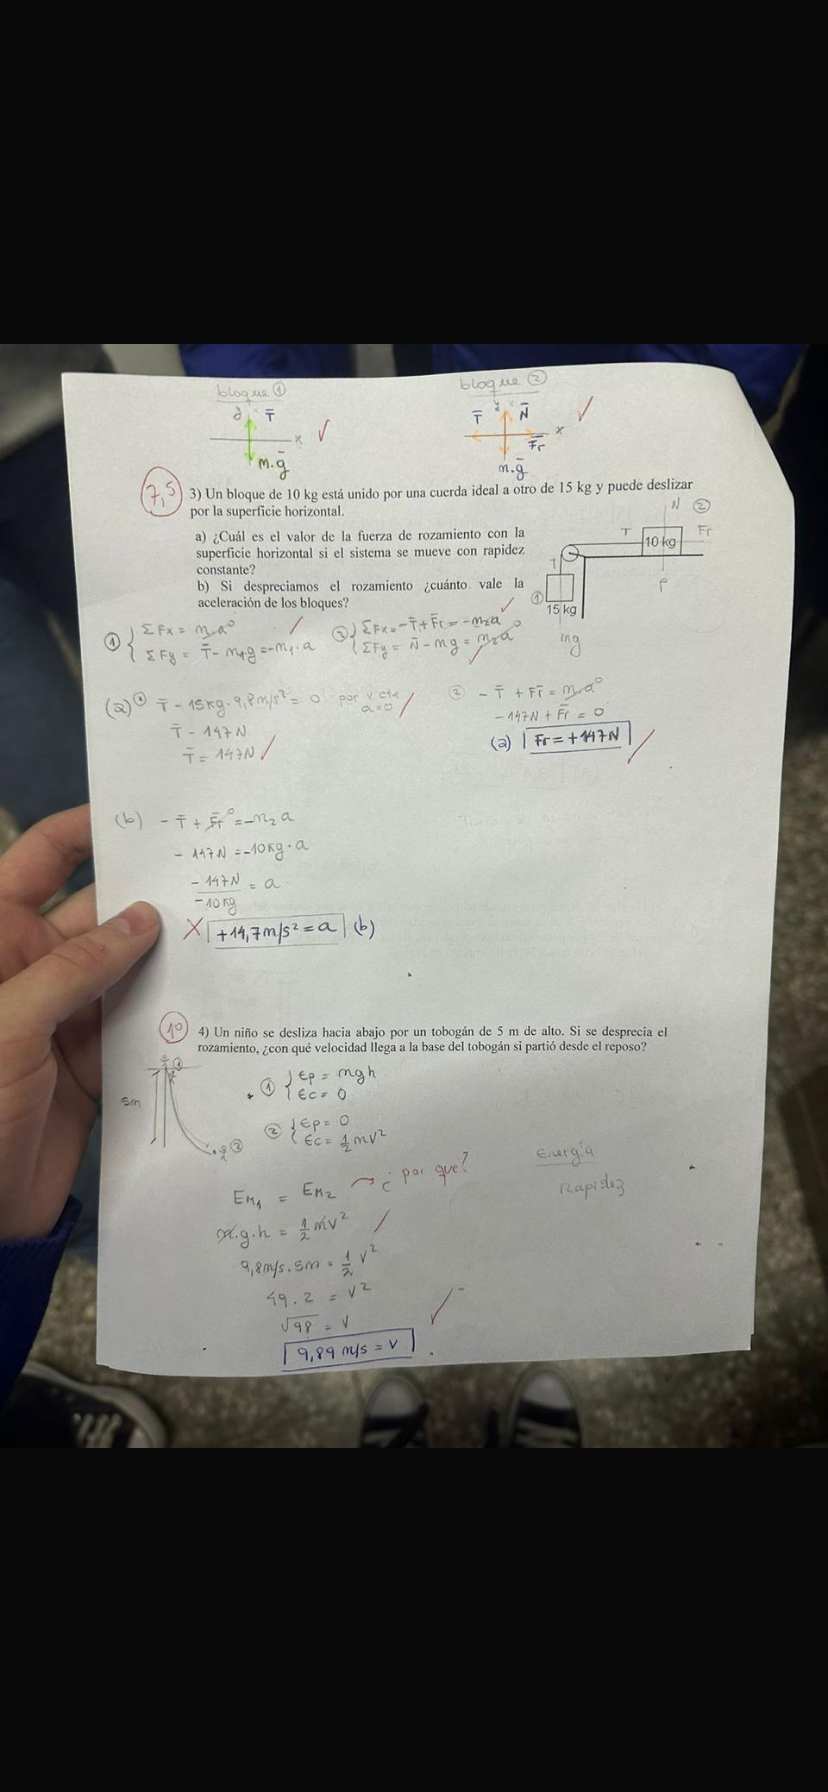 bloque ①
bloque ②
y T̄
x
m.ḡ
y
T̄ N̄
x
F̄r
m.ḡ
7,5
3) Un bloque de 10 kg está unido por una cuerda ideal a otro de 15 kg y puede deslizar
por la superficie horizontal.
a) ¿Cuál es el valor de la fuerza de rozamiento con la
superficie horizontal si el sistema se mueve con rapidez
constante?
b) Si despreciamos el rozamiento ¿cuánto vale la
aceleración de los bloques?
N ②
T 10 kg Fr
T
P
① 15 kg
mg
① { ΣFx = m.a⁰
ΣFy = T̄ - m₁g = -m₁.a
② { ΣFx = -T̄ + F̄r = -m₂a
ΣFy = N̄ - mg = m₂a⁰
(a) ① T̄ - 15kg.9,8m/s² = 0 por v cte
a=0
T̄ - 147N
T̄ = 147N
② -T̄ + F̄r = m.a⁰
-147N + F̄r = 0
(a) Fr = +147N
(b) -T̄ + F̄r⁰ = -m₂a
-147N = -10kg.a
-147N = a
-10kg
X +14,7m/s² = a (b)
10
4) Un niño se desliza hacia abajo por un tobogán de 5 m de alto. Si se desprecia el
rozamiento, ¿con qué velocidad llega a la base del tobogán si partió desde el reposo?
①
5m
②
① { Ep = mgh
Ec = 0
② { Ep = 0
Ec = ½mv²
Energía
Rapidez
EM₁ = EM₂ → ¿por que?
m.g.h = ½mv²
9,8m/s.5m = ½v²
49.2 = v²
√98 = v
9,89 m/s = v